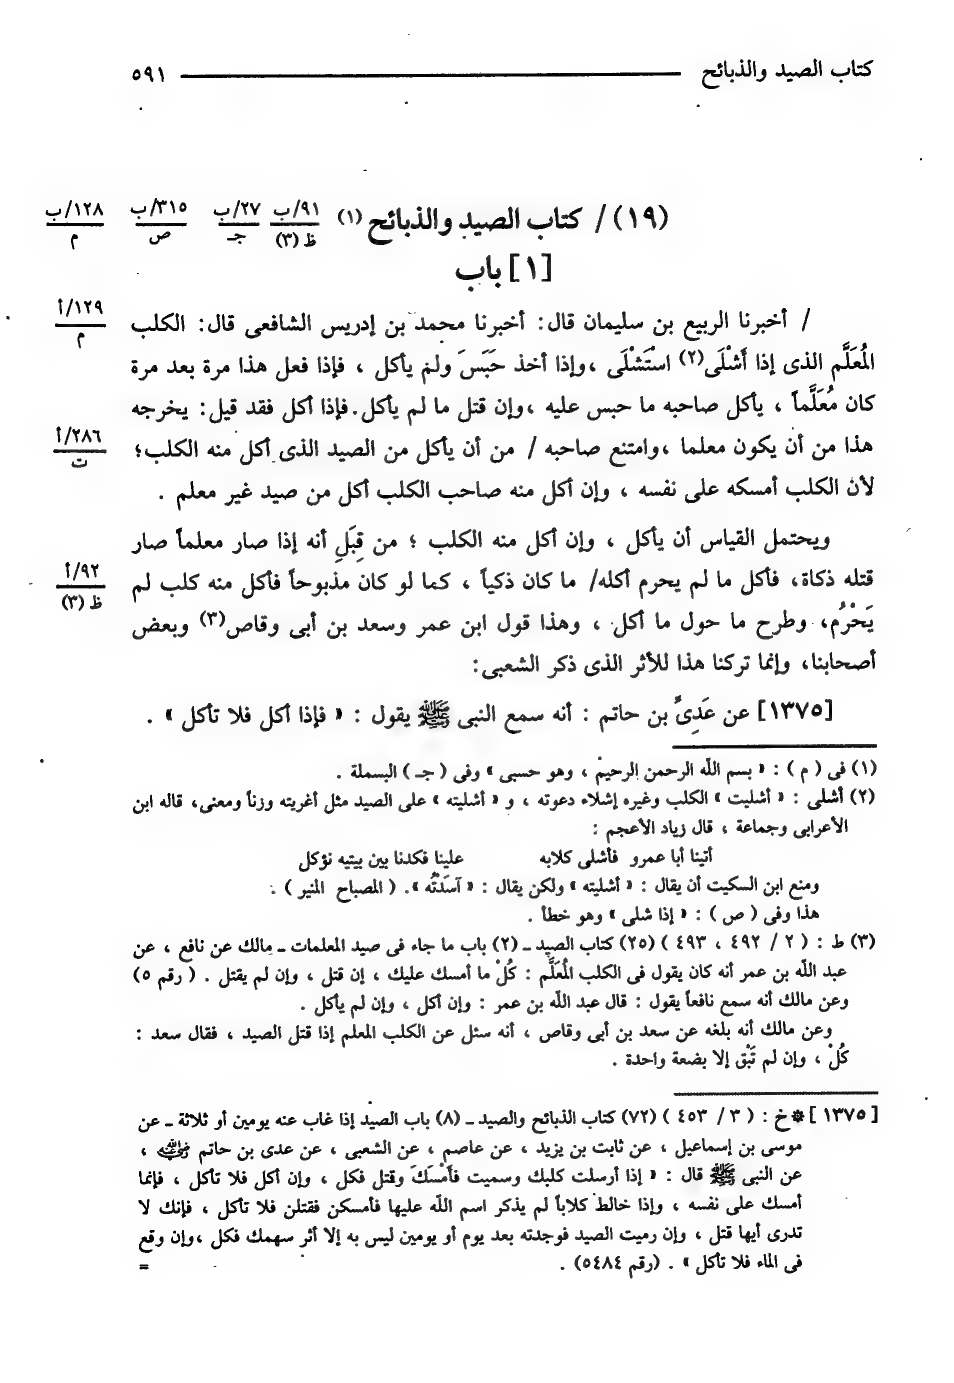 كتاب الصيد والذبائح ٥٩١
(١٩) / كتاب الصيد والذبائح (١) ٩١/ب ظ (٣) ٢٧/ب جـ ٣١٥/ب ص ١٢٨/ب م
[١] باب
/ أخبرنا الربيع بن سليمان قال: أخبرنا محمد بن إدريس الشافعى قال: الكلب ١٢٩/أ م
المُعَلَّم الذى إذا أَشْلَى(٢) اسْتَشْلَى ، وإذا أخذ حَبَسَ ولم يأكل ، فإذا فعل هذا مرة بعد مرة
كان مُعَلَّماً ، يأكل صاحبه ما حبس عليه ، وإن قتل ما لم يأكل. فإذا أكل فقد قيل: يخرجه
هذا من أن يكون معلما ، وامتنع صاحبه / من أن يأكل من الصيد الذى أكل منه الكلب؛ ٢٨٦/أ ت
لأن الكلب أمسكه على نفسه ، وإن أكل منه صاحب الكلب أكل من صيد غير معلم .
ويحتمل القياس أن يأكل ، وإن أكل منه الكلب ؛ من قِبَلِ أنه إذا صار معلماً صار
قتله ذكاة، فأكل ما لم يحرم أكله/ ما كان ذكياً ، كما لو كان مذبوحاً فأكل منه كلب لم ٩٢/أ ظ (٣)
يَحْرُم، وطرح ما حول ما أكل ، وهذا قول ابن عمر وسعد بن أبى وقاص(٣) وبعض
أصحابنا، وإنما تركنا هذا للأثر الذى ذكر الشعبى:
[١٣٧٥] عن عَدِىِّ بن حاتم : أنه سمع النبى ﷺ يقول : « فإذا أكل فلا تأكل » .
(١) فى ( م ) : « بسم الله الرحمن الرحيم ، وهو حسبى » وفى ( جـ ) البسملة .
(٢) أشلى : « أشليت » الكلب وغيره إشلاء دعوته ، و « أشليته » على الصيد مثل أغريته وزناً ومعنى، قاله ابن
الأعرابى وجماعة ، قال زياد الأعجم :
أتينا أبا عمرو فأشلى كلابه علينا فكدنا بين بيتيه نؤكل
ومنع ابن السكيت أن يقال : « أشليته » ولكن يقال : « آسَدتُه ». ( المصباح المنير ) .
هذا وفى ( ص ) : « إذا شلى » وهو خطأ .
(٣) ط : ( ٢ / ٤٩٢ ، ٤٩٣ ) (٢٥) كتاب الصيد ـ (٢) باب ما جاء فى صيد المعلمات ـ مالك عن نافع ، عن
عبد الله بن عمر أنه كان يقول فى الكلب المُعَلَّم : كُلْ ما أمسك عليك ، إن قتل ، وإن لم يقتل . ( رقم ٥)
وعن مالك أنه سمع نافعاً يقول : قال عبد الله بن عمر : وإن أكل ، وإن لم يأكل .
وعن مالك أنه بلغه عن سعد بن أبى وقاص ، أنه سئل عن الكلب المعلم إذا قتل الصيد ، فقال سعد :
كُلْ ، وإن لم تَبْق إلا بضعة واحدة .
[ ١٣٧٥ ] * خ : ( ٣ / ٤٥٣ ) (٧٢) كتاب الذبائح والصيد ـ (٨) باب الصيد إذا غاب عنه يومين أو ثلاثة ـ عن
موسى بن إسماعيل ، عن ثابت بن يزيد ، عن عاصم ، عن الشعبى ، عن عدى بن حاتم رضي الله عنه ،
عن النبى ﷺ قال : « إذا أرسلت كلبك وسميت فأمْسَكَ وقتل فكل ، وإن أكل فلا تأكل ، فإنما
أمسك على نفسه ، وإذا خالط كلاباً لم يذكر اسم الله عليها فأمسكن فقتلن فلا تأكل ، فإنك لا
تدرى أيها قتل ، وإن رميت الصيد فوجدته بعد يوم أو يومين ليس به إلا أثر سهمك فكل ، وإن وقع
فى الماء فلا تأكل » . (رقم ٥٤٨٤) . =